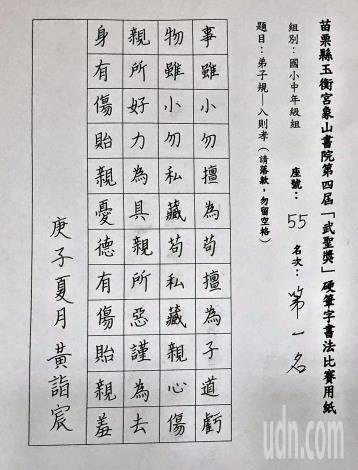 苗栗縣玉衡宮象山書院第四屆「武聖獎」硬筆字書法比賽用紙
組別：國小中年級組 座號：55 名次：第一名
題目：弟子規—入則孝（請落款，勿留空格）
事雖小勿擅為苟擅為子道虧
物雖小勿私藏苟私藏親心傷
親所好力為具親所惡謹為去
身有傷貽親憂德有傷貽親羞
庚子夏月黃詣宸
udn.com